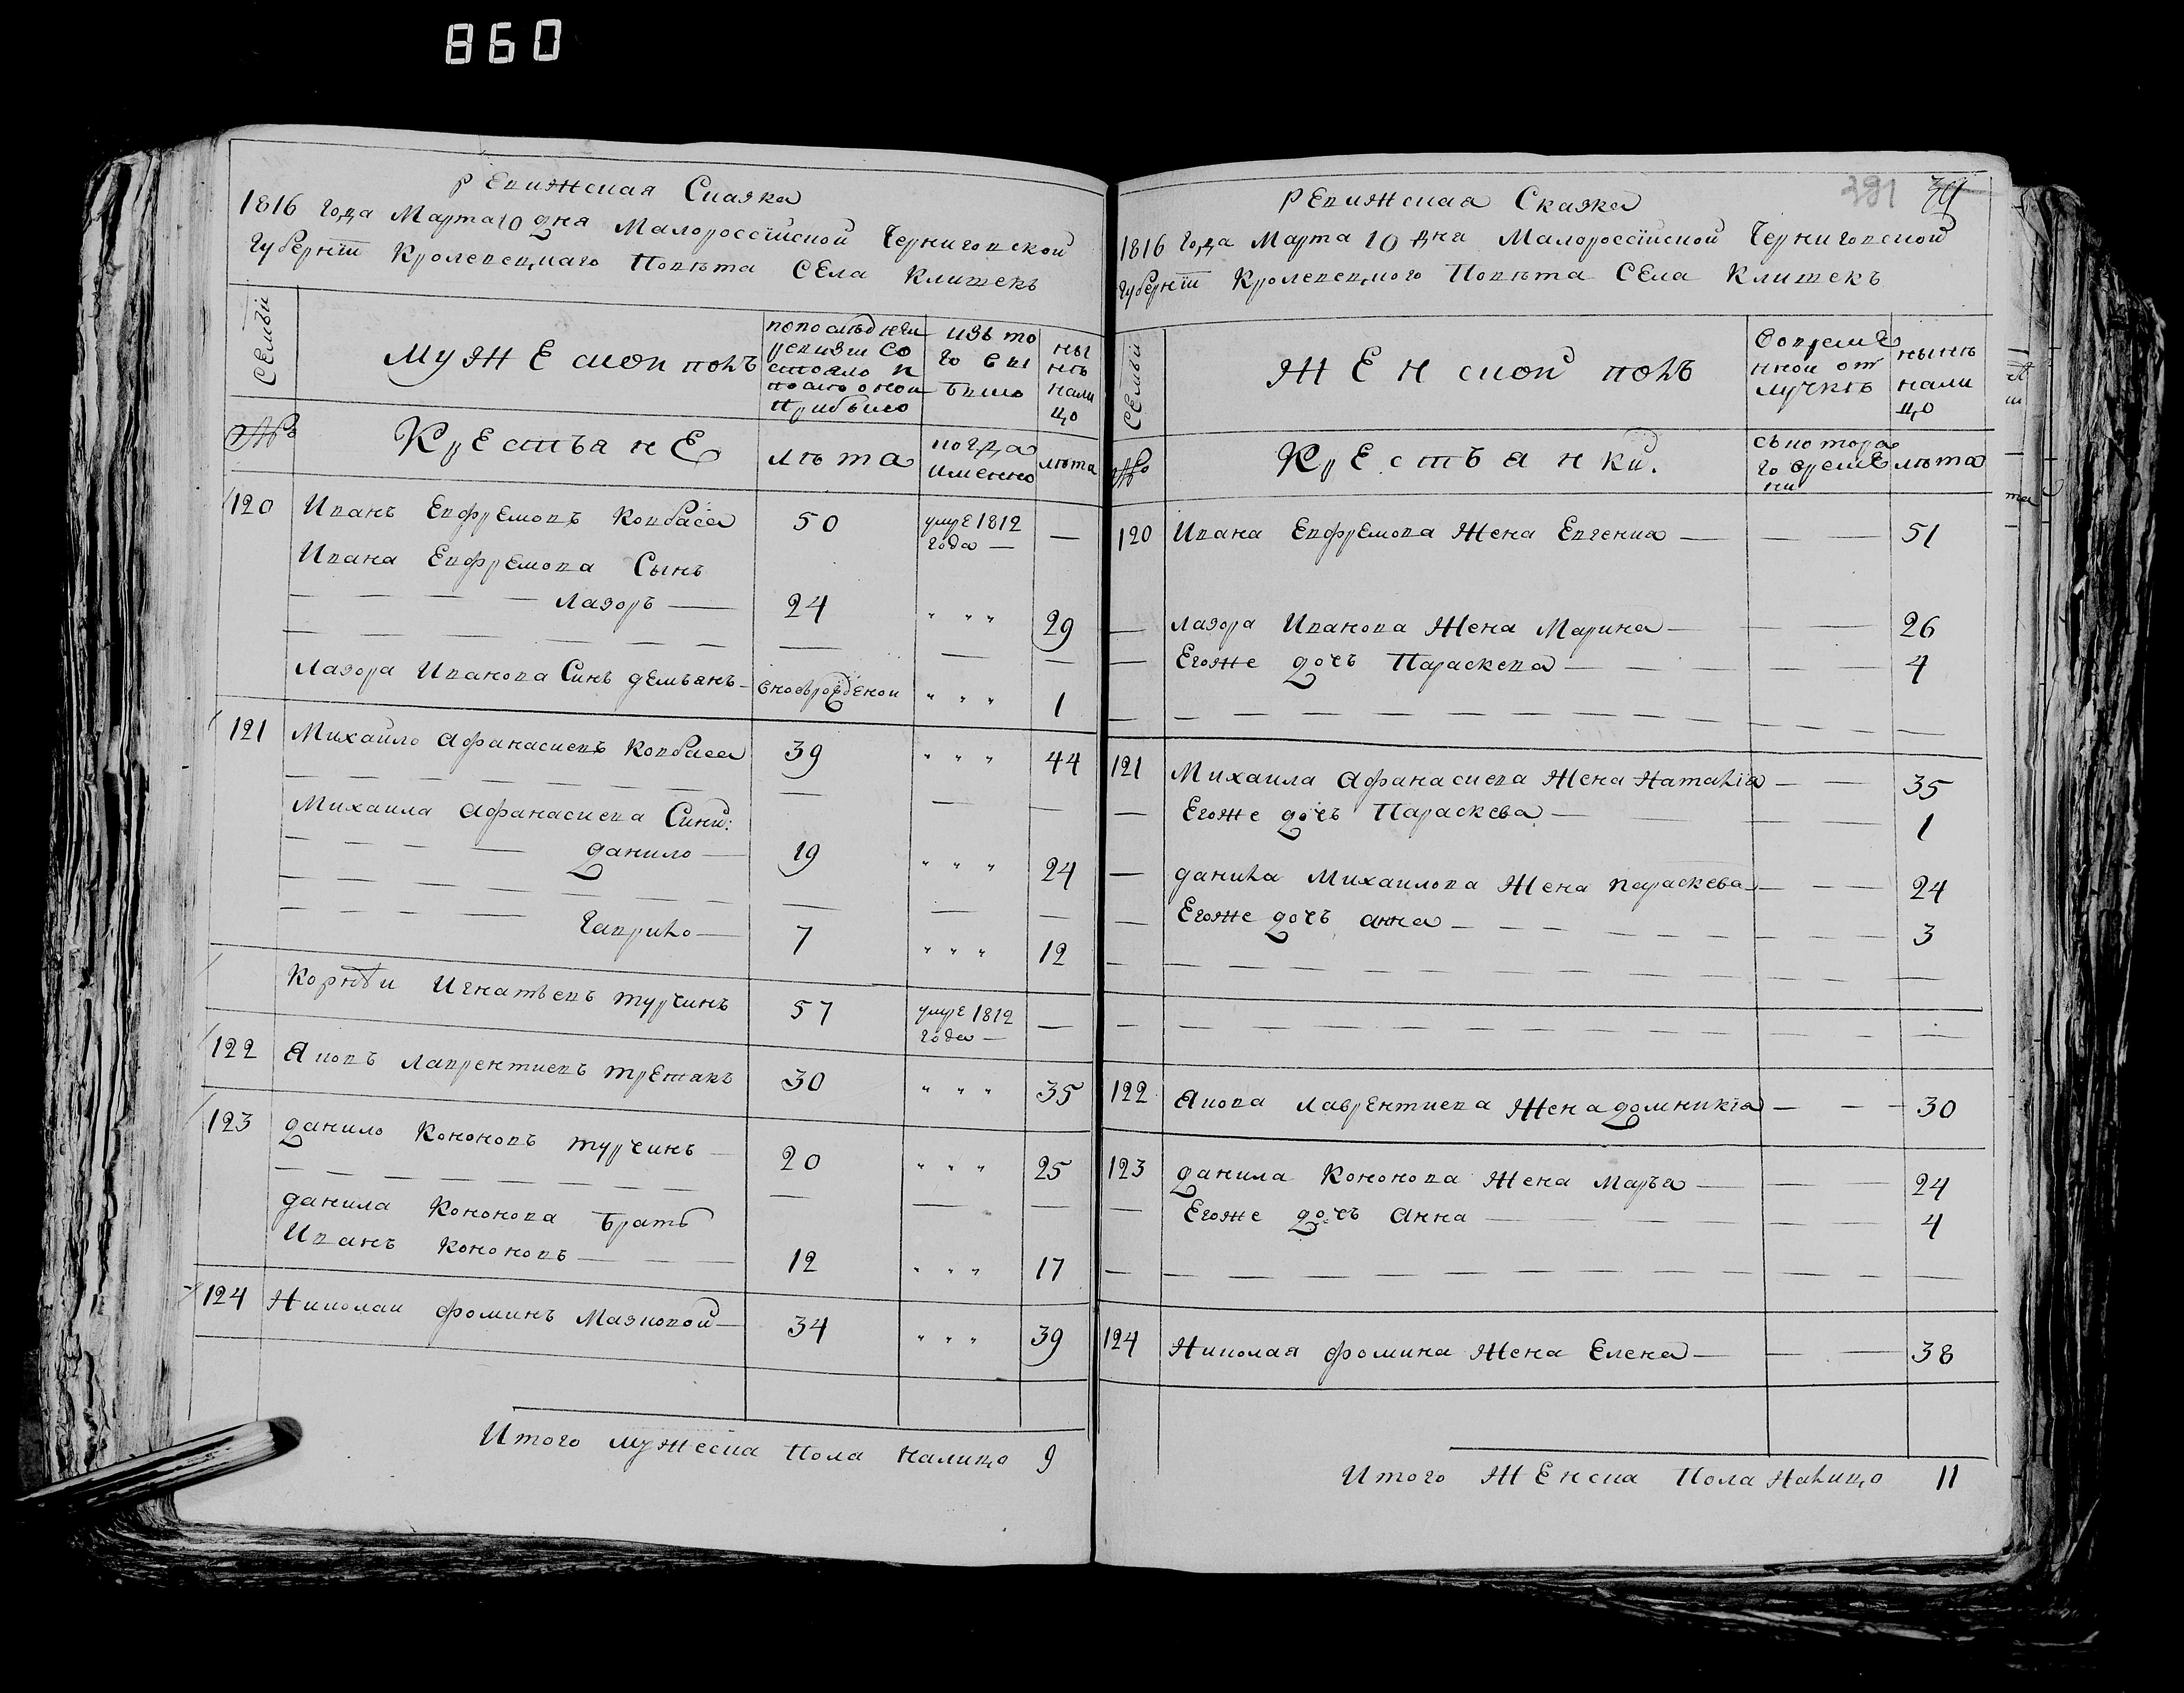 860
Ревижская Сказка
1816 года Марта 10 дня Малороссійской Черниговской
Губерніи Кролевецкаго Повѣта Села Клишекъ
Семьи
Мужескои полъ
попоследней
ревизіи со
стояло и
после оной
прибыло
изъ то
го вы
было
ны
нѣ
нали
цо
№
Крестьяне
лѣта
когда
именно
лѣта
120 Иванъ Евфремовъ Ковбаса 50 умре 1812 года —
Ивана Евфремова Сынъ
Лазоръ — 24 " " " 29
Лазора Иванова Синъ демьянъ — вновьрожденои " " " 1
121 Михайло Афанасиевъ Ковбаса 39 " " " 44
Михаила Афанасиева Сини:
данило — 19 " " " 24
Гаврило — 7 " " " 12
Корнѣи Игнатьевъ турчинъ 57 умре 1812 года —
122 Яковъ Лаврентиевъ третякъ 30 " " " 35
123 данило Кононовъ турчинъ 20 " " " 25
данила Кононова братъ
Иванъ Кононовъ — 12 " " " 17
124 Николаи фоминъ Мазновой — 34 " " " 39
Итого мужеска пола налицо 9
391 39
Ревижская Сказка
1816 года Марта 10 дня Малороссійской Черниговской
Губерніи Кролевецкого Повѣта Села Клишекъ
Семьи
Женской полъ
Вовреме
нной от
лучкѣ
нынѣ
нали
цо
№
Крестьянки.
съ котора
го време
ни
лѣта
120 Ивана Евфремова Жена Евгениа — — — 51
— Лазора Иванова Жена Марина — — — 26
— Егоже дочъ Параскева — — — 4
121 Михаила Афанасиева Жена Наталія — — 35
— Егоже дочъ Параскева — — — 1
— данила Михаилова Жена параскева — — — 24
— Егоже дочъ анна — — — 3
122 Якова Лаврентиева Жена домникія — — — 30
123 данила Кононова Жена Марья — — — 24
— Егоже дочъ Анна — — — 4
124 Николая фомина Жена Елена — — — 38
Итого Женска Пола Налицо 11